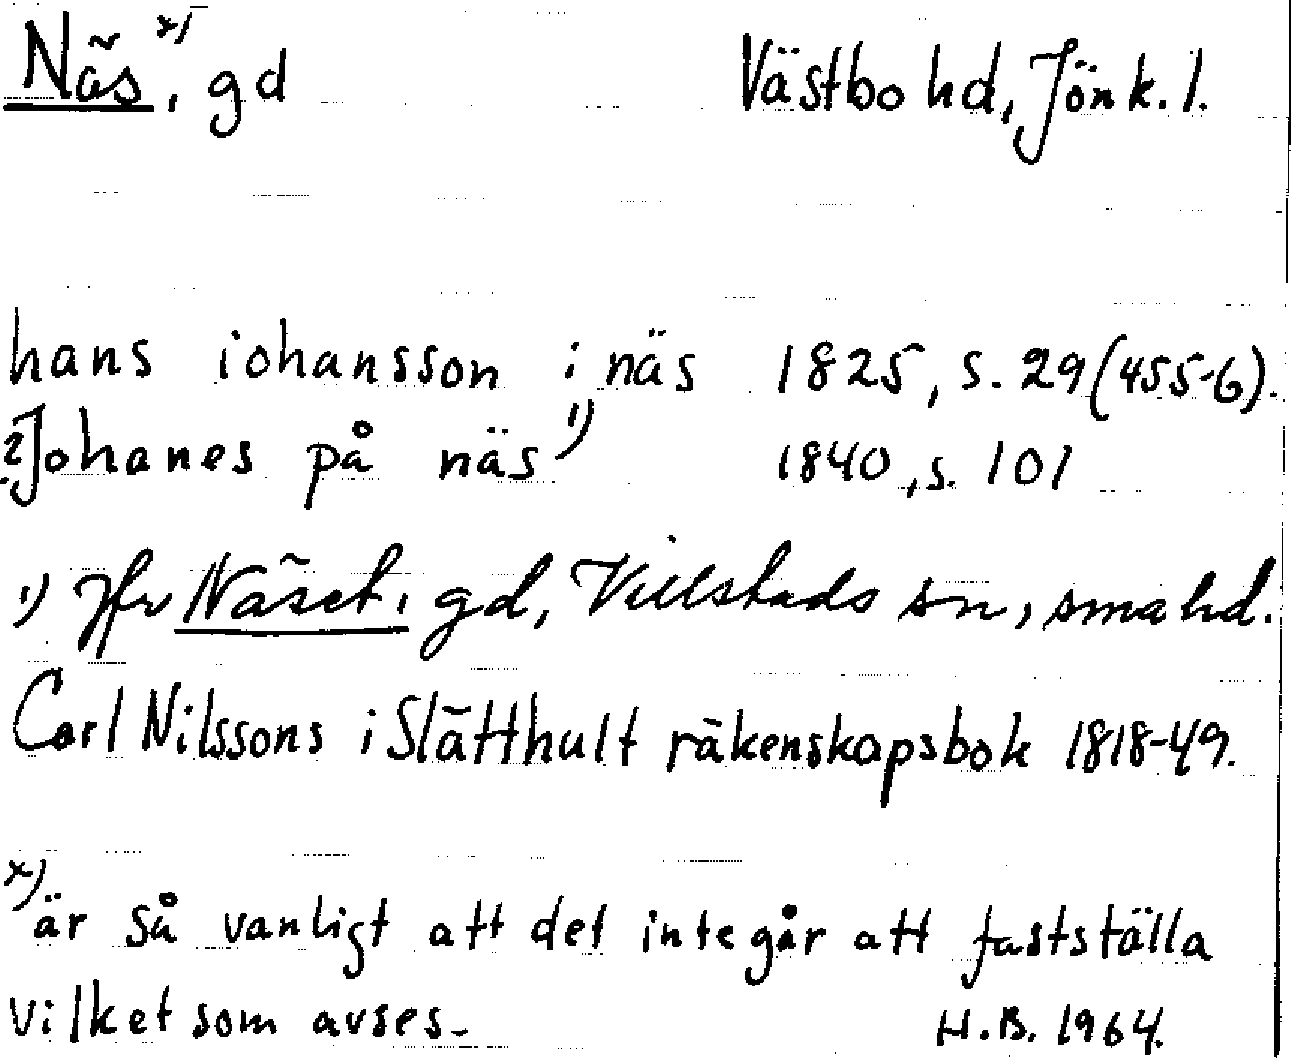 Näs x), gd Västbo hd, Jönk. l.
hans iohansson i näs 1825, s. 29 (455-6).
?Johanes på näs 1) 1840, s. 101
1) Jfr Näset, gd, Villstads sn, sma hd.
Carl Nilssons i Slätthult räkenskapsbok 1818-49.
x) är så vanligt att det inte går att fastställa
vilket som avses.
H.B. 1964.